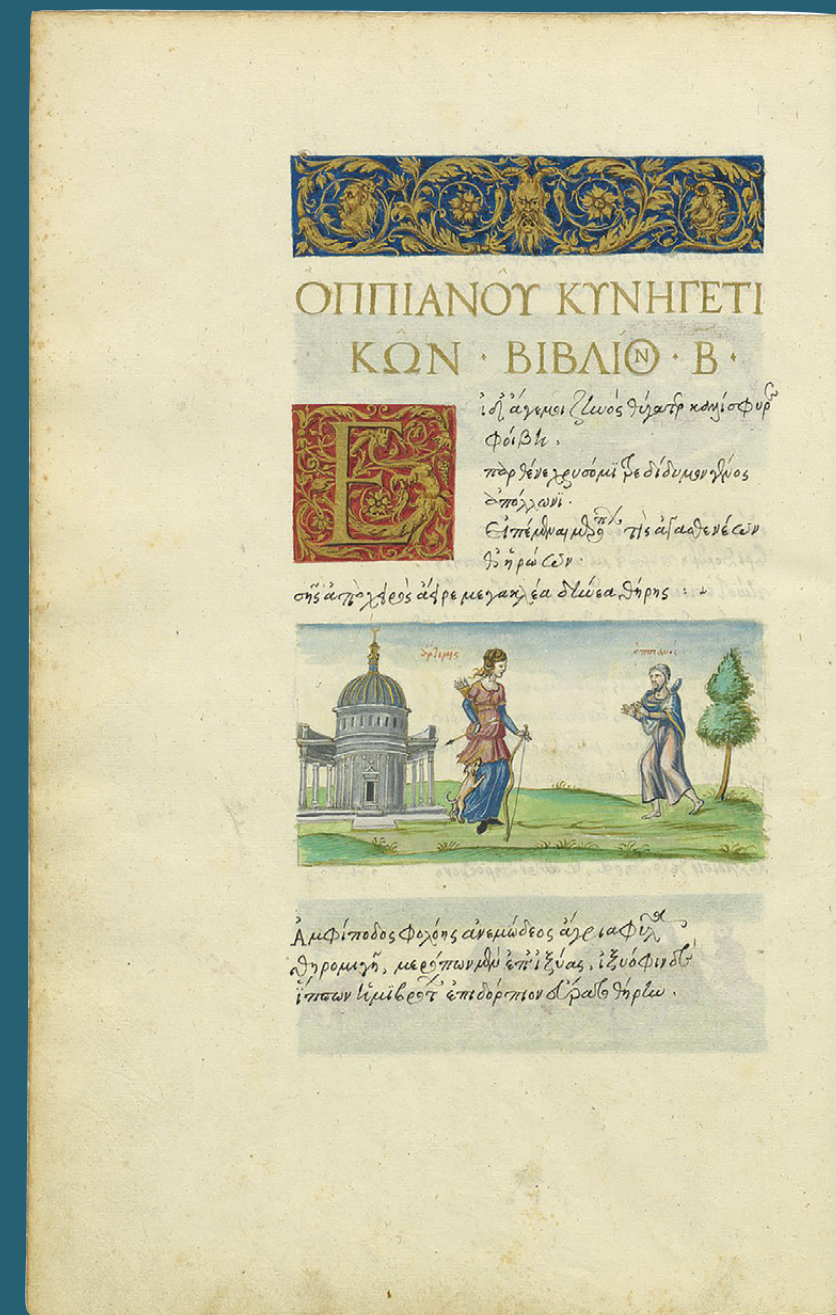 ΟΠΠΙΑΝΟῦ ΚΥΝΗΓΕΤΙ
ΚῶΝ · ΒΙΒΛΊΟΝ · Β ·
Ε ἰ δ' ἄγεμοι ζηνὸς θύγατερ καλλίσφυρε
φοίβη,
παρθένε χρυσόμιτρε δίδυμον γένος
ἀπόλλωνι·
Εἰπέμεναι μερόπων τίς ἀγασθενέων
θ' ἡρώων·
σῆς ἀπὸ χειρὸς ἄειρε μεγακλέα δήνεα θήρης :
ἄρτεμις ὀππιανός
Ἀμφίποδας φολόης ἀνεμώδεος ἄγρια φῦλα
θηρομιγῆ, μερόπων μὲν ἐπ' ἰξύας, ἰξυόφιν δ'
ἵππων ἡμιβρότων ἐπιδόρπιον εὕρατο θήρην.